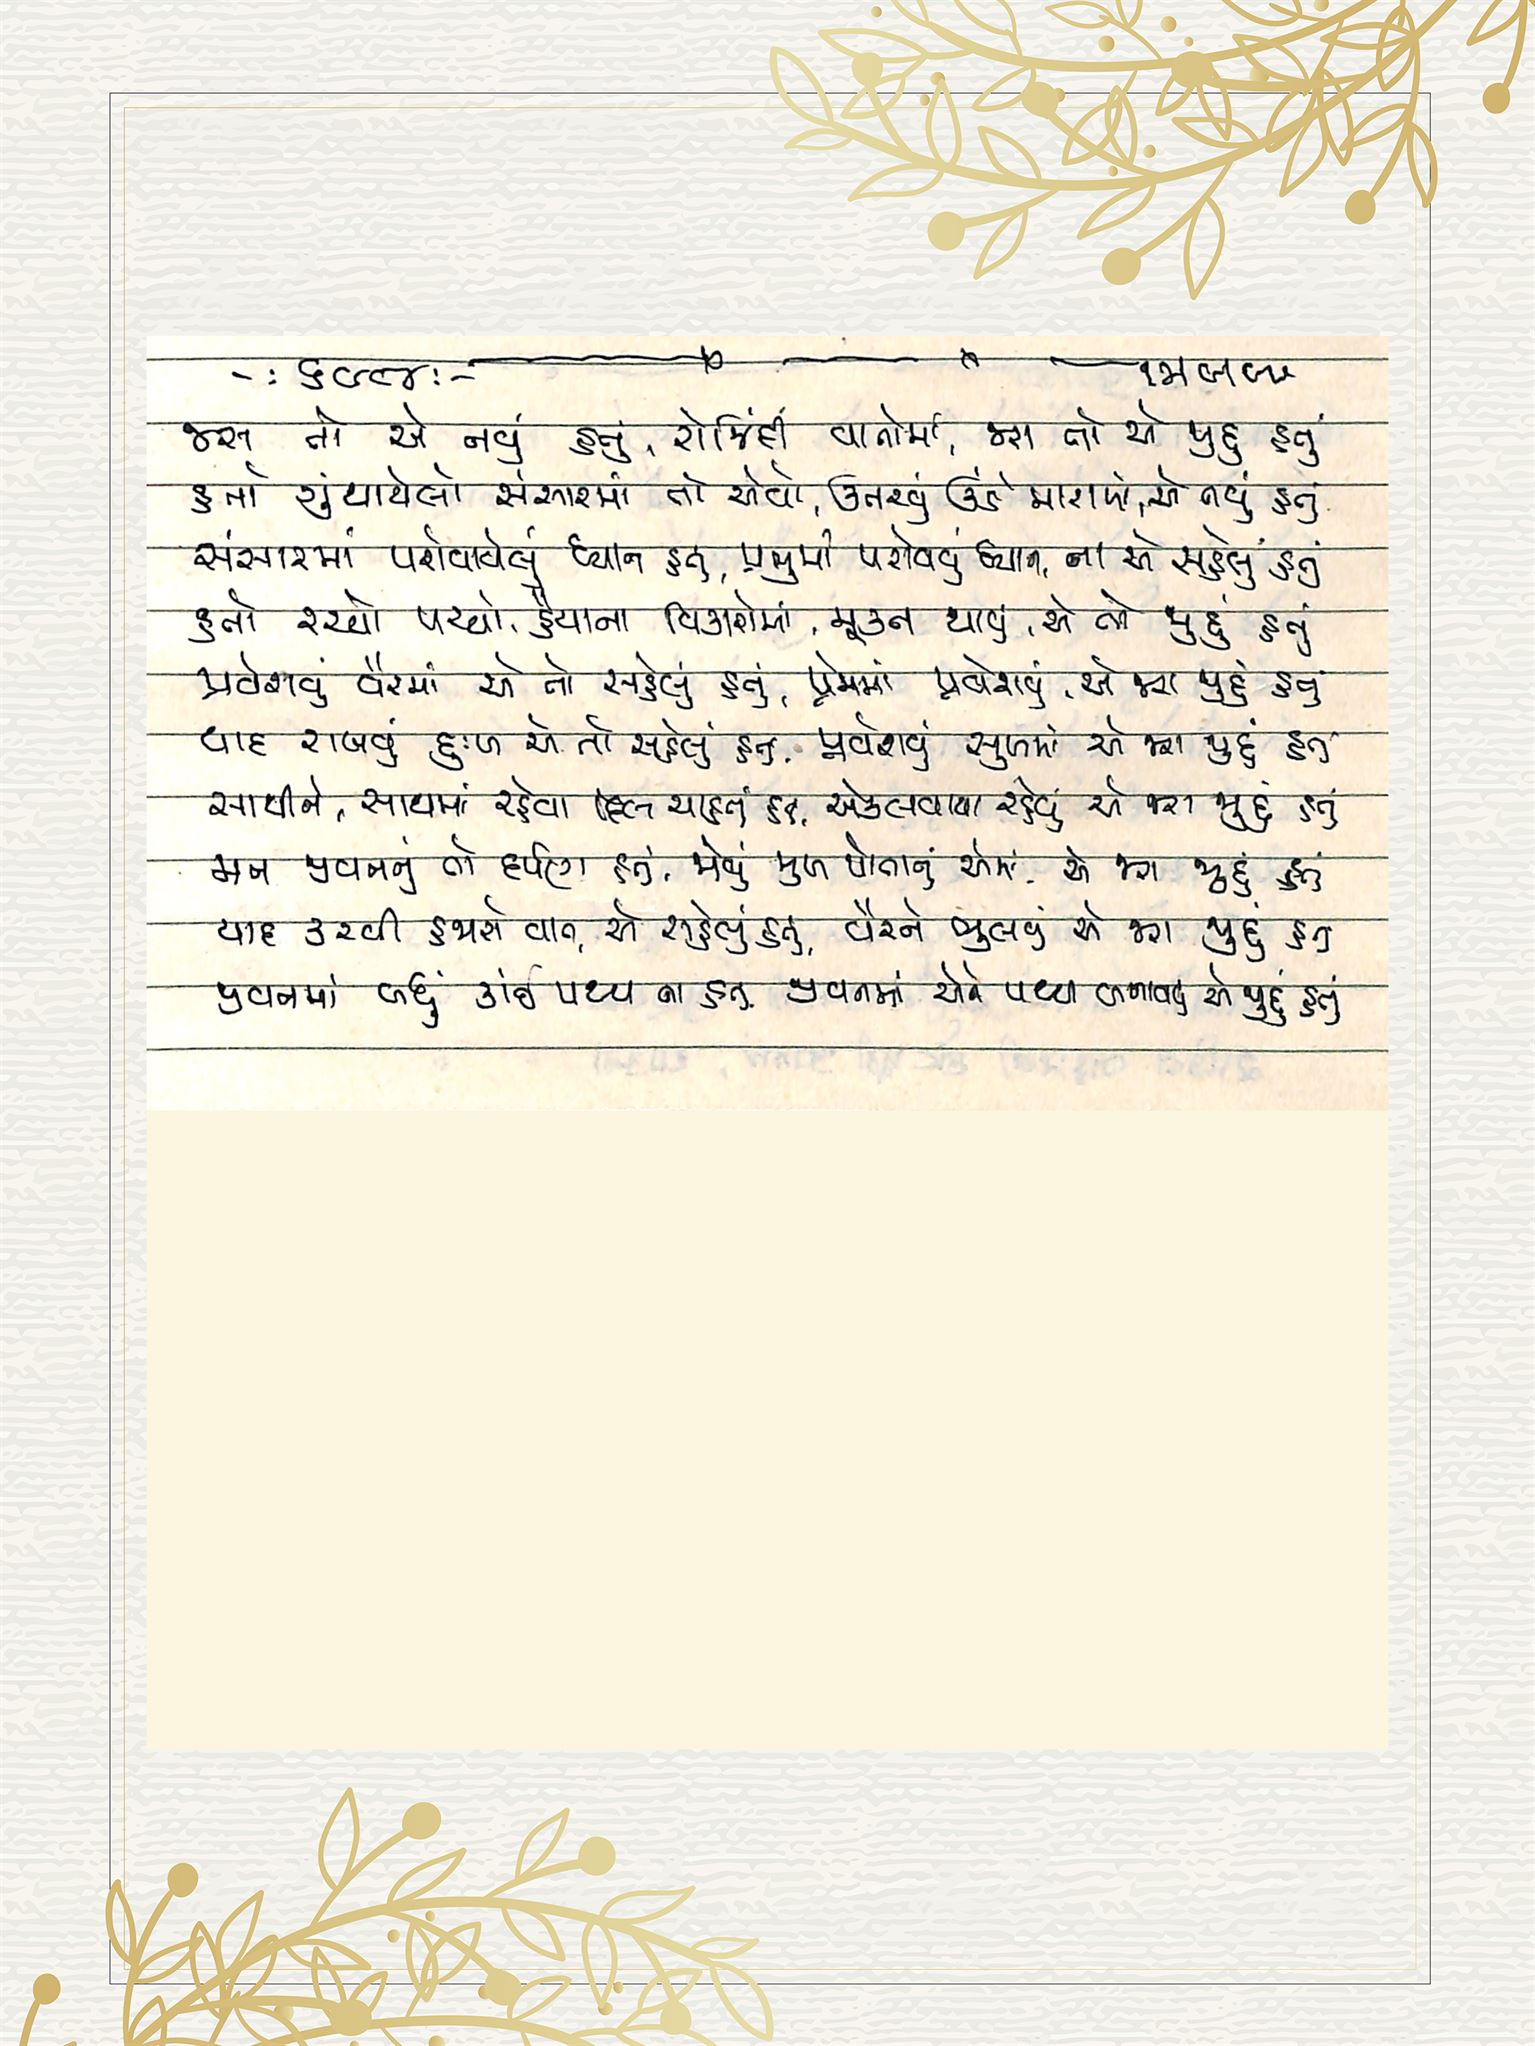 જરા તો એ નવું હતું, રોજિંદી વાતોમાં, જરા તો એ જુદું હતું
હતો ગુંથાયેલો સંસારમાં તો એવો, ઉતરવું ઊંડે મારામાં, એ નવું હતું
સંસારમાં પરોવાયેલું ધ્યાન હતું, પ્રભુમાં પરોવવું ધ્યાન, ના એ સહેલું હતું
હતો રચ્યો પચ્યો, હૈયાના વિકારોમાં, મૂક્ત થાવું, એ તો જુદું હતું
પ્રવેશવું વૈરમાં એ તો સહેલું હતું, પ્રેમમાં પ્રવેશવું, એ જરા જુદું હતું
યાદ રાખવું દુઃખ એ તો સહેલું હતું, પ્રવેશવું સુખમાં એ જરા જુદું હતું
સાથીને, સાથમાં રહેવા દિલ ચાહતું હતું, એકલવાયા રહેવું એ જરા જુદું હતું
મન જીવનનું તો દર્પણ હતું, જોવું મુખ પોતાનું એમાં, એ જરા જુદું હતું
યાદ કરવી હજારો વાત, એ સહેલું હતું, વૈરને ભુલવું એ જરા જુદું હતું
જીવનમાં બધું કાંઈ પથ્ય ના હતું, જીવનમાં એને પથ્ય બનાવવું એ જુદું હતું